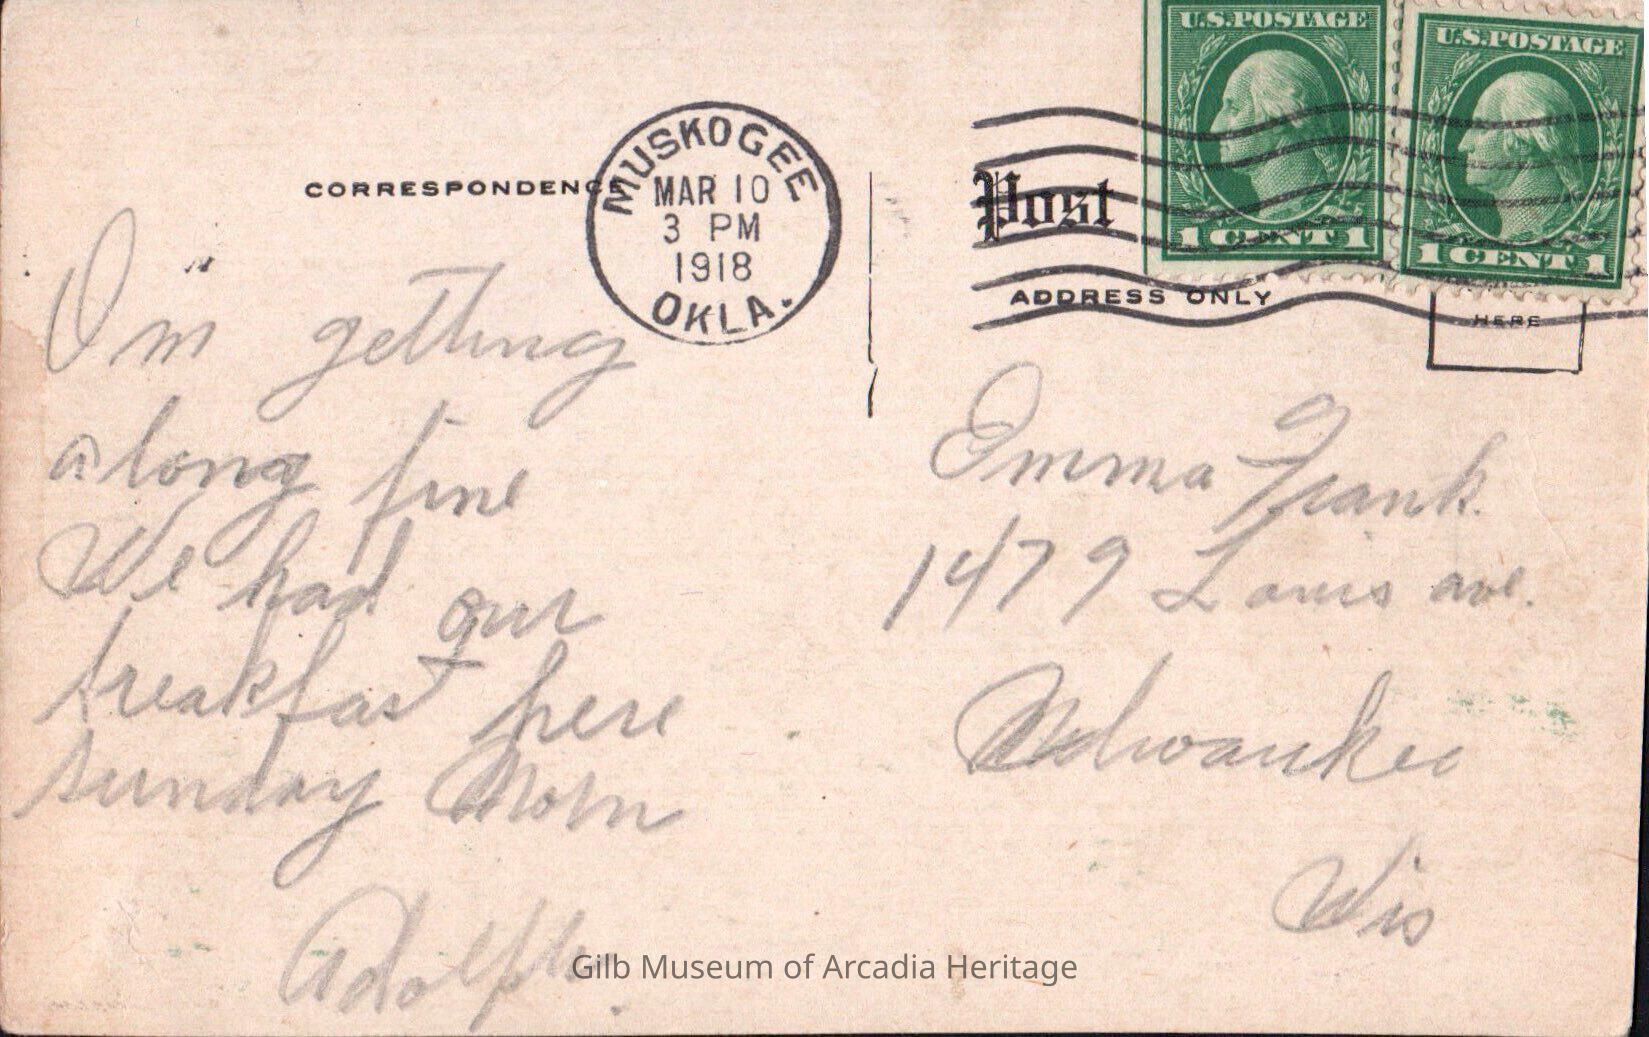 CORRESPONDENCE
MUSKOGEE
MAR 10
3 PM
1918
OKLA.
Post
ADDRESS ONLY
HERE
U.S. POSTAGE
1 CENT 1
U.S. POSTAGE
1 CENT 1
I'm getting
along fine
We had our
breakfast here
Sunday Morn
Adolph.
Emma Frank.
1479 Louis ave.
Milwaukee
Wis
Gilb Museum of Arcadia Heritage